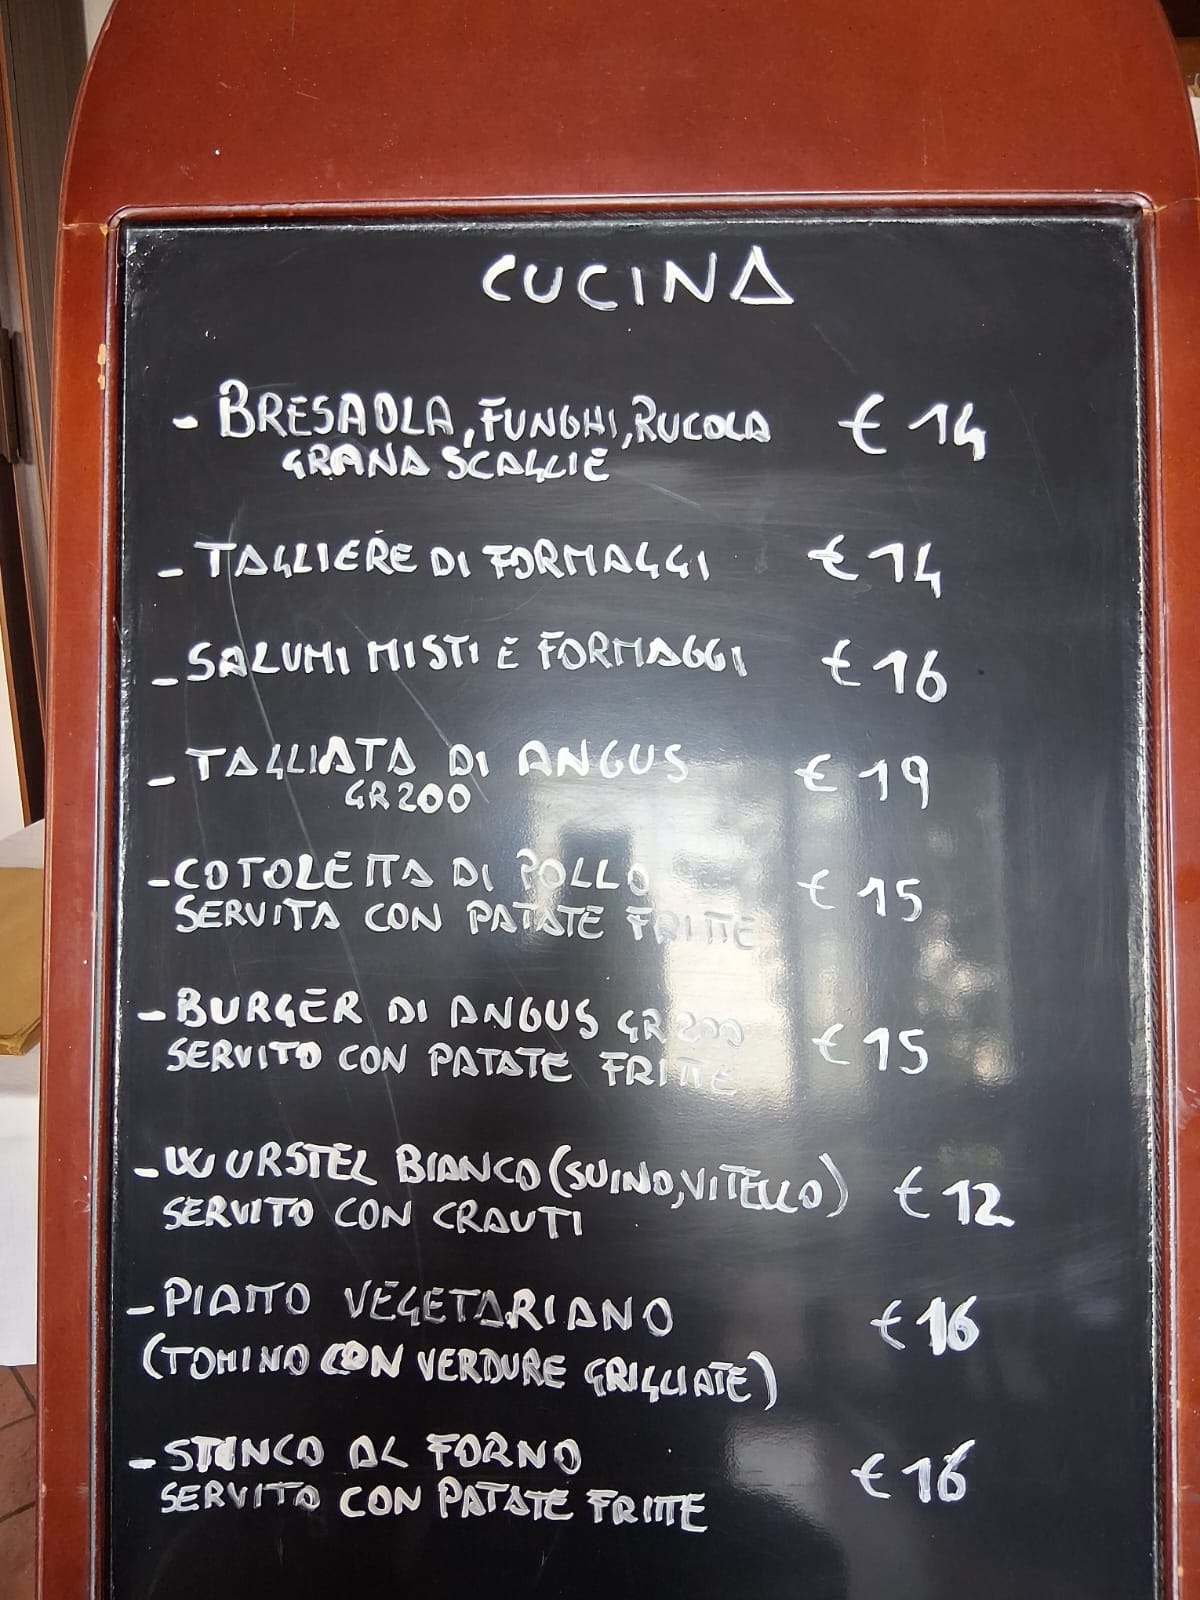 CUCINA
- BRESAOLA, FUNGHI, RUCOLA € 14
GRANA SCAGLIE
- TAGLIERE DI FORMAGGI € 14
- SALUMI MISTI E FORMAGGI € 16
- TAGLIATA DI ANGUS € 19
GR 200
- COTOLETTA DI POLLO € 15
SERVITA CON PATATE FRITTE
- BURGER DI ANGUS GR 200 € 15
SERVITO CON PATATE FRITTE
- WURSTEL BIANCO (SUINO, VITELLO) € 12
SERVITO CON CRAUTI
- PIATTO VEGETARIANO € 16
(TOMINO CON VERDURE GRIGLIATE)
- STINCO AL FORNO € 16
SERVITO CON PATATE FRITTE